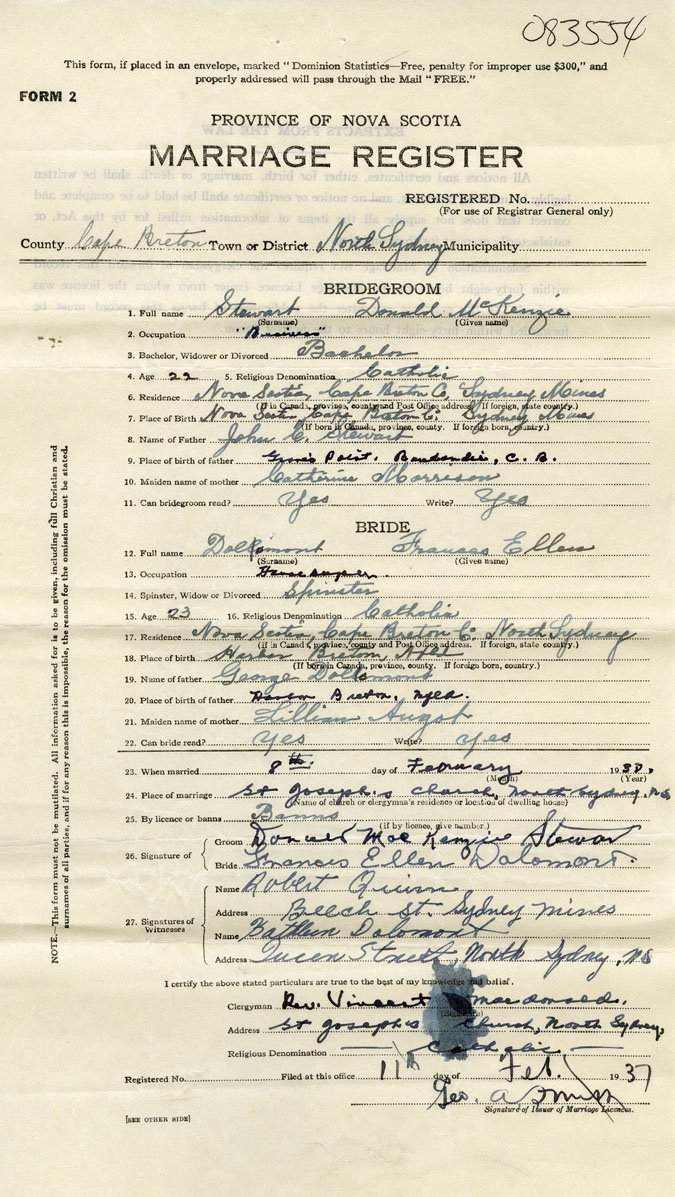 083554
This form, if placed in an envelope, marked "Dominion Statistics—Free, penalty for improper use $300," and
properly addressed will pass through the Mail "FREE."
FORM 2
PROVINCE OF NOVA SCOTIA
MARRIAGE REGISTER
REGISTERED No.
(For use of Registrar General only)
County Cape Breton Town or District North Sydney Municipality
BRIDEGROOM
1. Full name Stewart Donald McKenzie
(Surname) (Given name)
2. Occupation "Business"
3. Bachelor, Widower or Divorced Bachelor
4. Age 22 5. Religious Denomination Catholic
6. Residence Nova Scotia, Cape Breton Co, Sydney Mines
(If in Canada, province, county and Post Office address. If foreign, state country.)
7. Place of Birth Nova Scotia Cape Breton Co. Sydney Mines
(If born in Canada, province, county. If foreign born, country.)
8. Name of Father John C. Stewart
9. Place of birth of father Point, C. B.
10. Maiden name of mother Catherine Morrison
11. Can bridegroom read? Yes Write? Yes
BRIDE
12. Full name Frances Ellen
(Surname) (Given name)
13. Occupation
14. Spinster, Widow or Divorced Spinster
15. Age 23 16. Religious Denomination Catholic
17. Residence Nova Scotia, Cape Breton Co. North Sydney
(if in Canada, province, county and Post Office address. If foreign, state country.)
18. Place of birth Harbor Breton, Nfld
(If born in Canada, province, county. If foreign born, country.)
19. Name of father George
20. Place of birth of father Harbor Breton, Nfld.
21. Maiden name of mother Lillian Augst
22. Can bride read? Yes Write? Yes
23. When married 8th. day of February 1937.
(Month) (Year)
24. Place of marriage St Joseph's Church, North Sydney, N.S.
(Name of church or clergyman's residence or location of dwelling house)
25. By licence or banns Banns
(If by licence, give number.)
26. Signature of
Groom Donald MacKenzie Stewart
Bride Frances Ellen Dolomont.
27. Signatures of Witnesses
Name Robert Quinn
Address Beech St. Sydney Mines
Name Kathleen Dolomont
Address Queen Street, North Sydney, NS
I certify the above stated particulars are to the best of my knowledge and belief.
Clergyman Rev. Vincent Macdonald.
Address St Joseph's Church, North Sydney,
Religious Denomination Catholic
Registered No. Filed at this office 11th day of Feb. 1937
Geo. A.
Signature of Issuer of Marriage Licences.
[SEE OTHER SIDE]
NOTE.—This form must not be mutilated. All information asked for is to be given, including full Christian and
surnames of all parties, and if for any reason this is impossible, the reason for the omission must be stated.